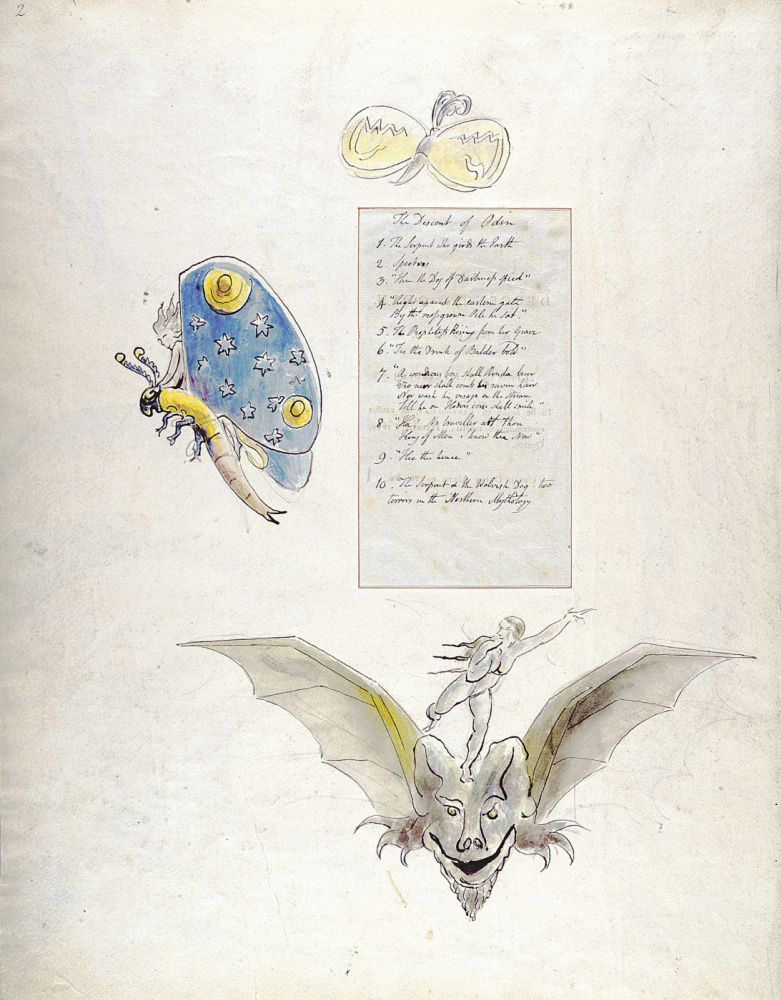 2
The Descent of Odin
1. The Serpent who girds the Earth
2. Spectres
3. "Him the Dog of Darkness spied"
4. "Right against the eastern gate
By the mossgrown Pile he sat."
5. The Prophetess Rising from her Grave
6. "Tis the Drink of Balder bold"
7. "A wondrous boy shall Rinda bear
Who neer shall comb his raven hair
Nor wash his visage in the Stream
Till he on Hoders corse shall smile"
8 "Ha! No Traveller art Thou
King of Men I know thee Now"
9. "Hie the hence"
10. The Serpent & the Wolvish Dog: two
terrors in the Northern Mythology